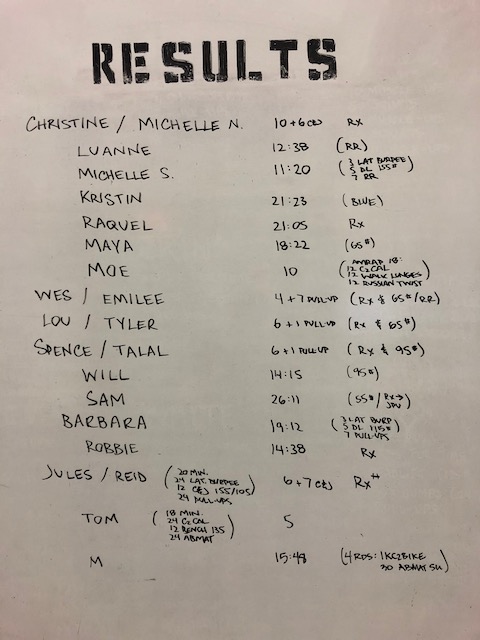 RESULTS
CHRISTINE / MICHELLE N. 10+6 C&J Rx
LUANNE 12:38 (RR)
MICHELLE S. 11:20 (3 LAT BURPEE
5 DL 155#
7 RR)
KRISTIN 21:23 (BLUE)
RAQUEL 21:05 Rx
MAYA 18:22 (65#)
MOE 10 (AMRAP 18:
12 C2 CAL
12 WALK LUNGES
12 RUSSIAN TWIST)
WES / EMILEE 4+7 PULL-UP (Rx & 65#/RR)
LOU / TYLER 6+1 PULL-UP (Rx & 65#)
SPENCE / TALAL 6+1 PULL-UP (Rx & 95#)
WILL 14:15 (95#)
SAM 26:11 (55# / Rx→
JPU)
BARBARA 19:12 (3 LAT BURP
5 DL 115#
7 PULL-UPS)
ROBBIE 14:38 Rx
JULES / REID (20 MIN.
24 LAT. BURPEE
12 C&J 155/105
24 PULL-UPS) 6+7 C&J Rx#
TOM (18 MIN.
24 C2 CAL
12 BENCH 135
24 ABMAT) 5
M 15:48 (4 RDS: 1K C2BIKE
30 ABMAT SU)